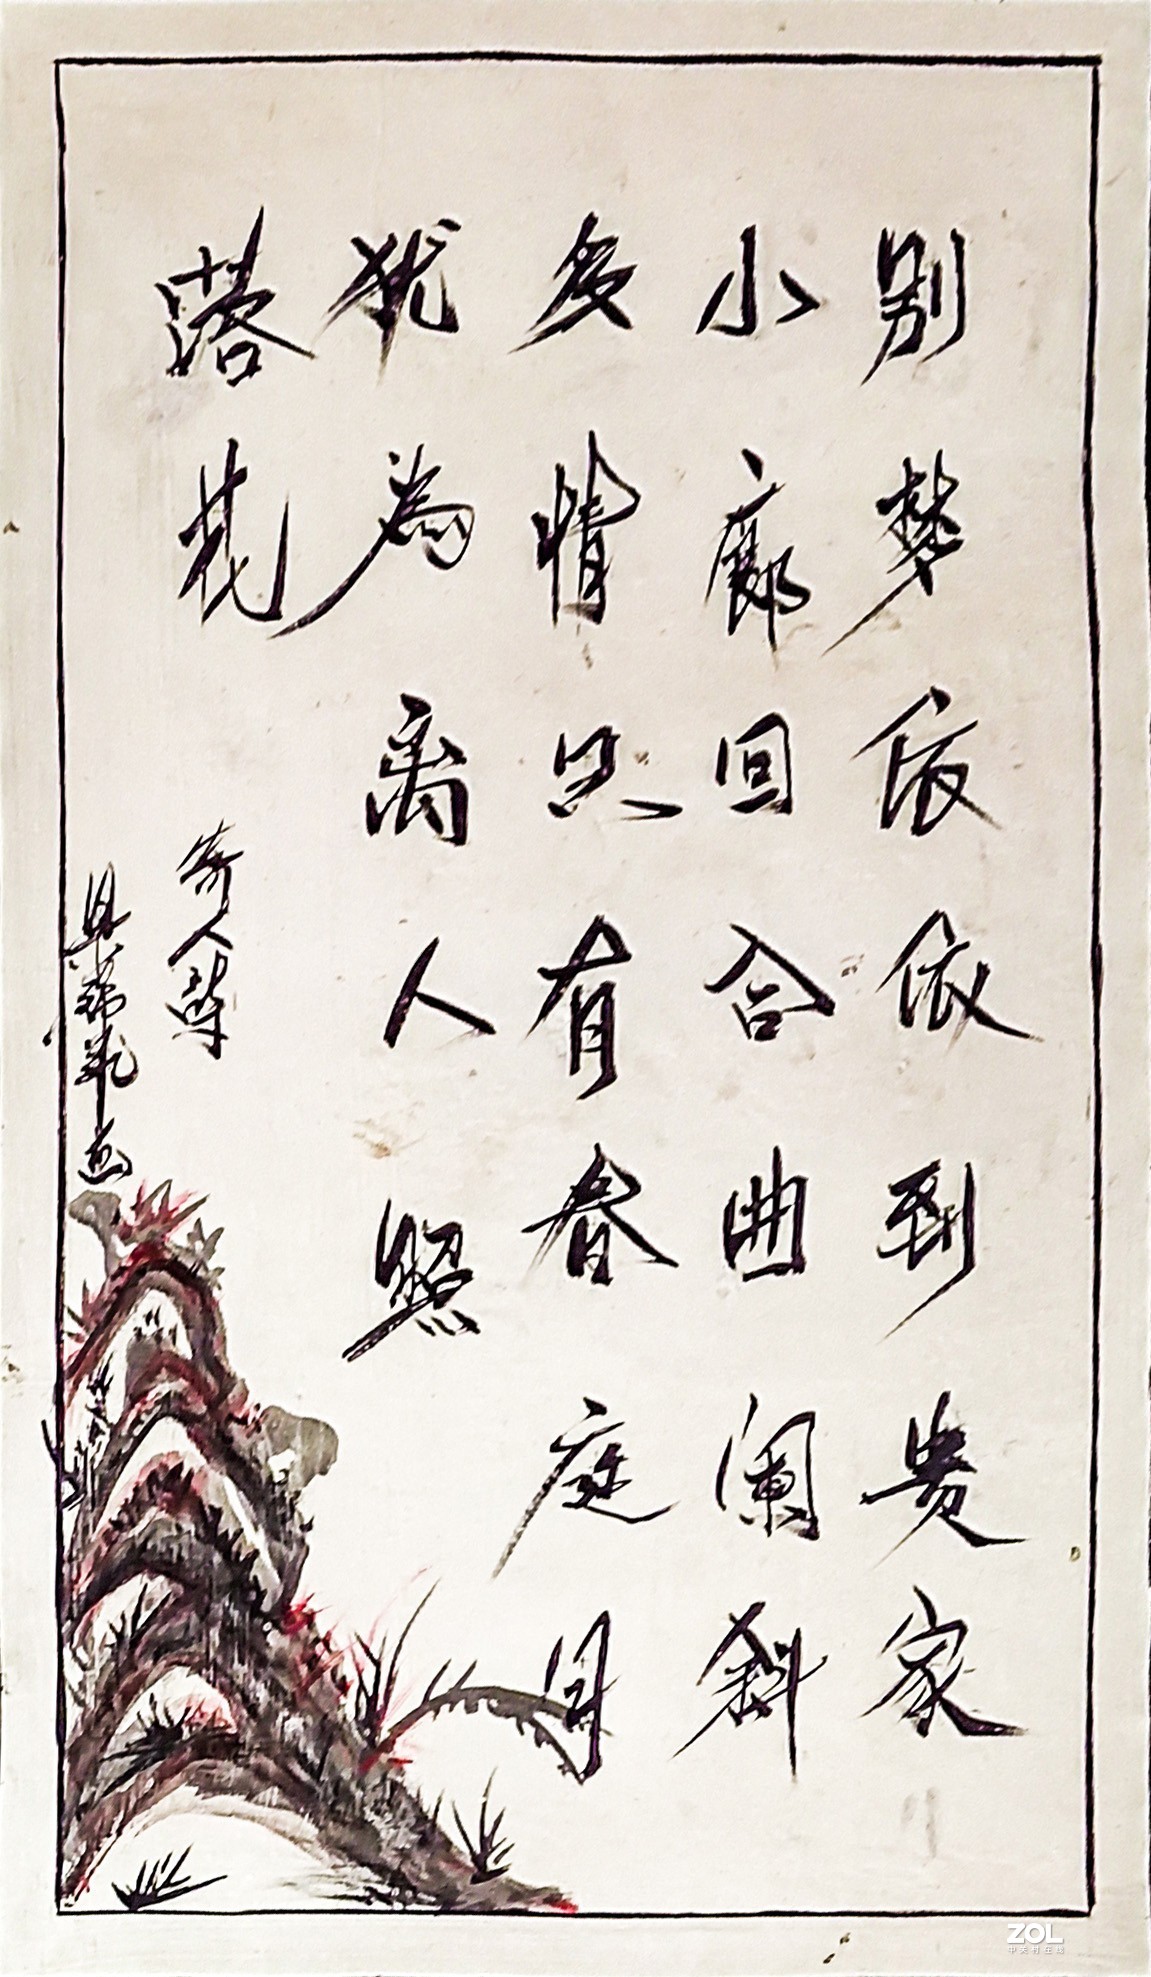 别梦依依到贵家
小廊回合曲阑斜
多情只有春庭月
犹為离人照
落花
寄人
ZOL
中关村在线